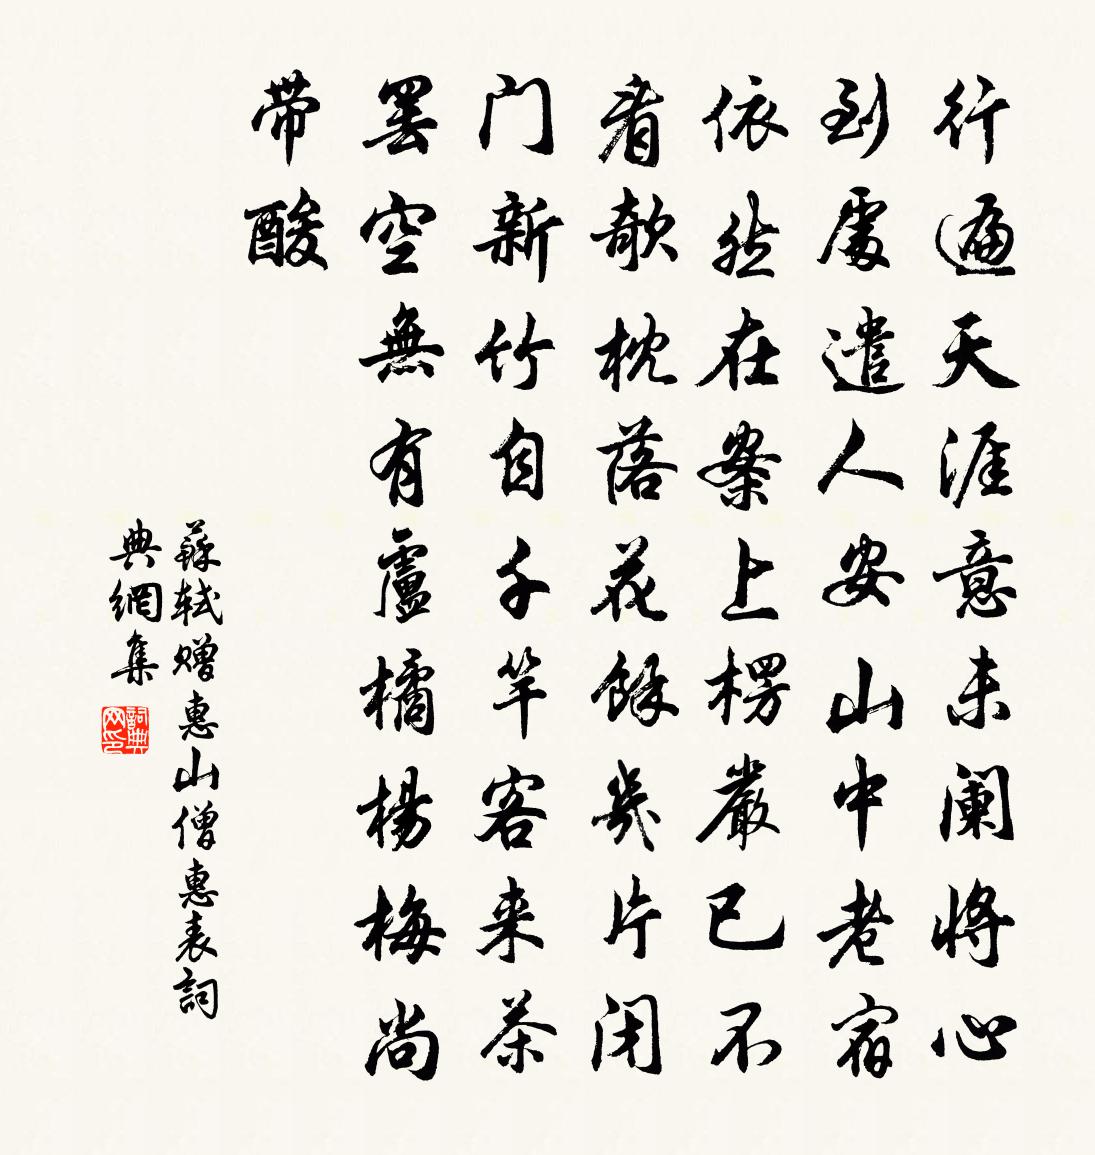 行遍天涯意未阑将心
到處遣人安山中老宿
依然在案上楞嚴已不
看欹枕落花餘幾片闭
门新竹自千竿客来茶
罢空無有盧橘楊梅尚
带酸
蘇轼赠惠山僧惠表詞
典網集
詞典网印